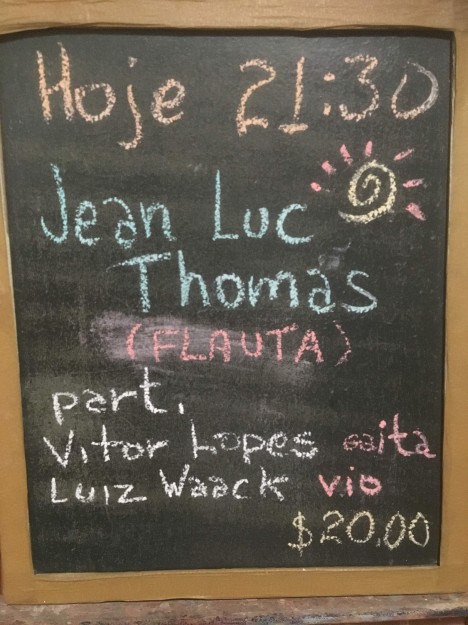 Hoje 21:30
Jean Luc
Thomas
(FLAUTA)
part.
Vitor Lopes gaita
Luiz Waack vio
$20,00